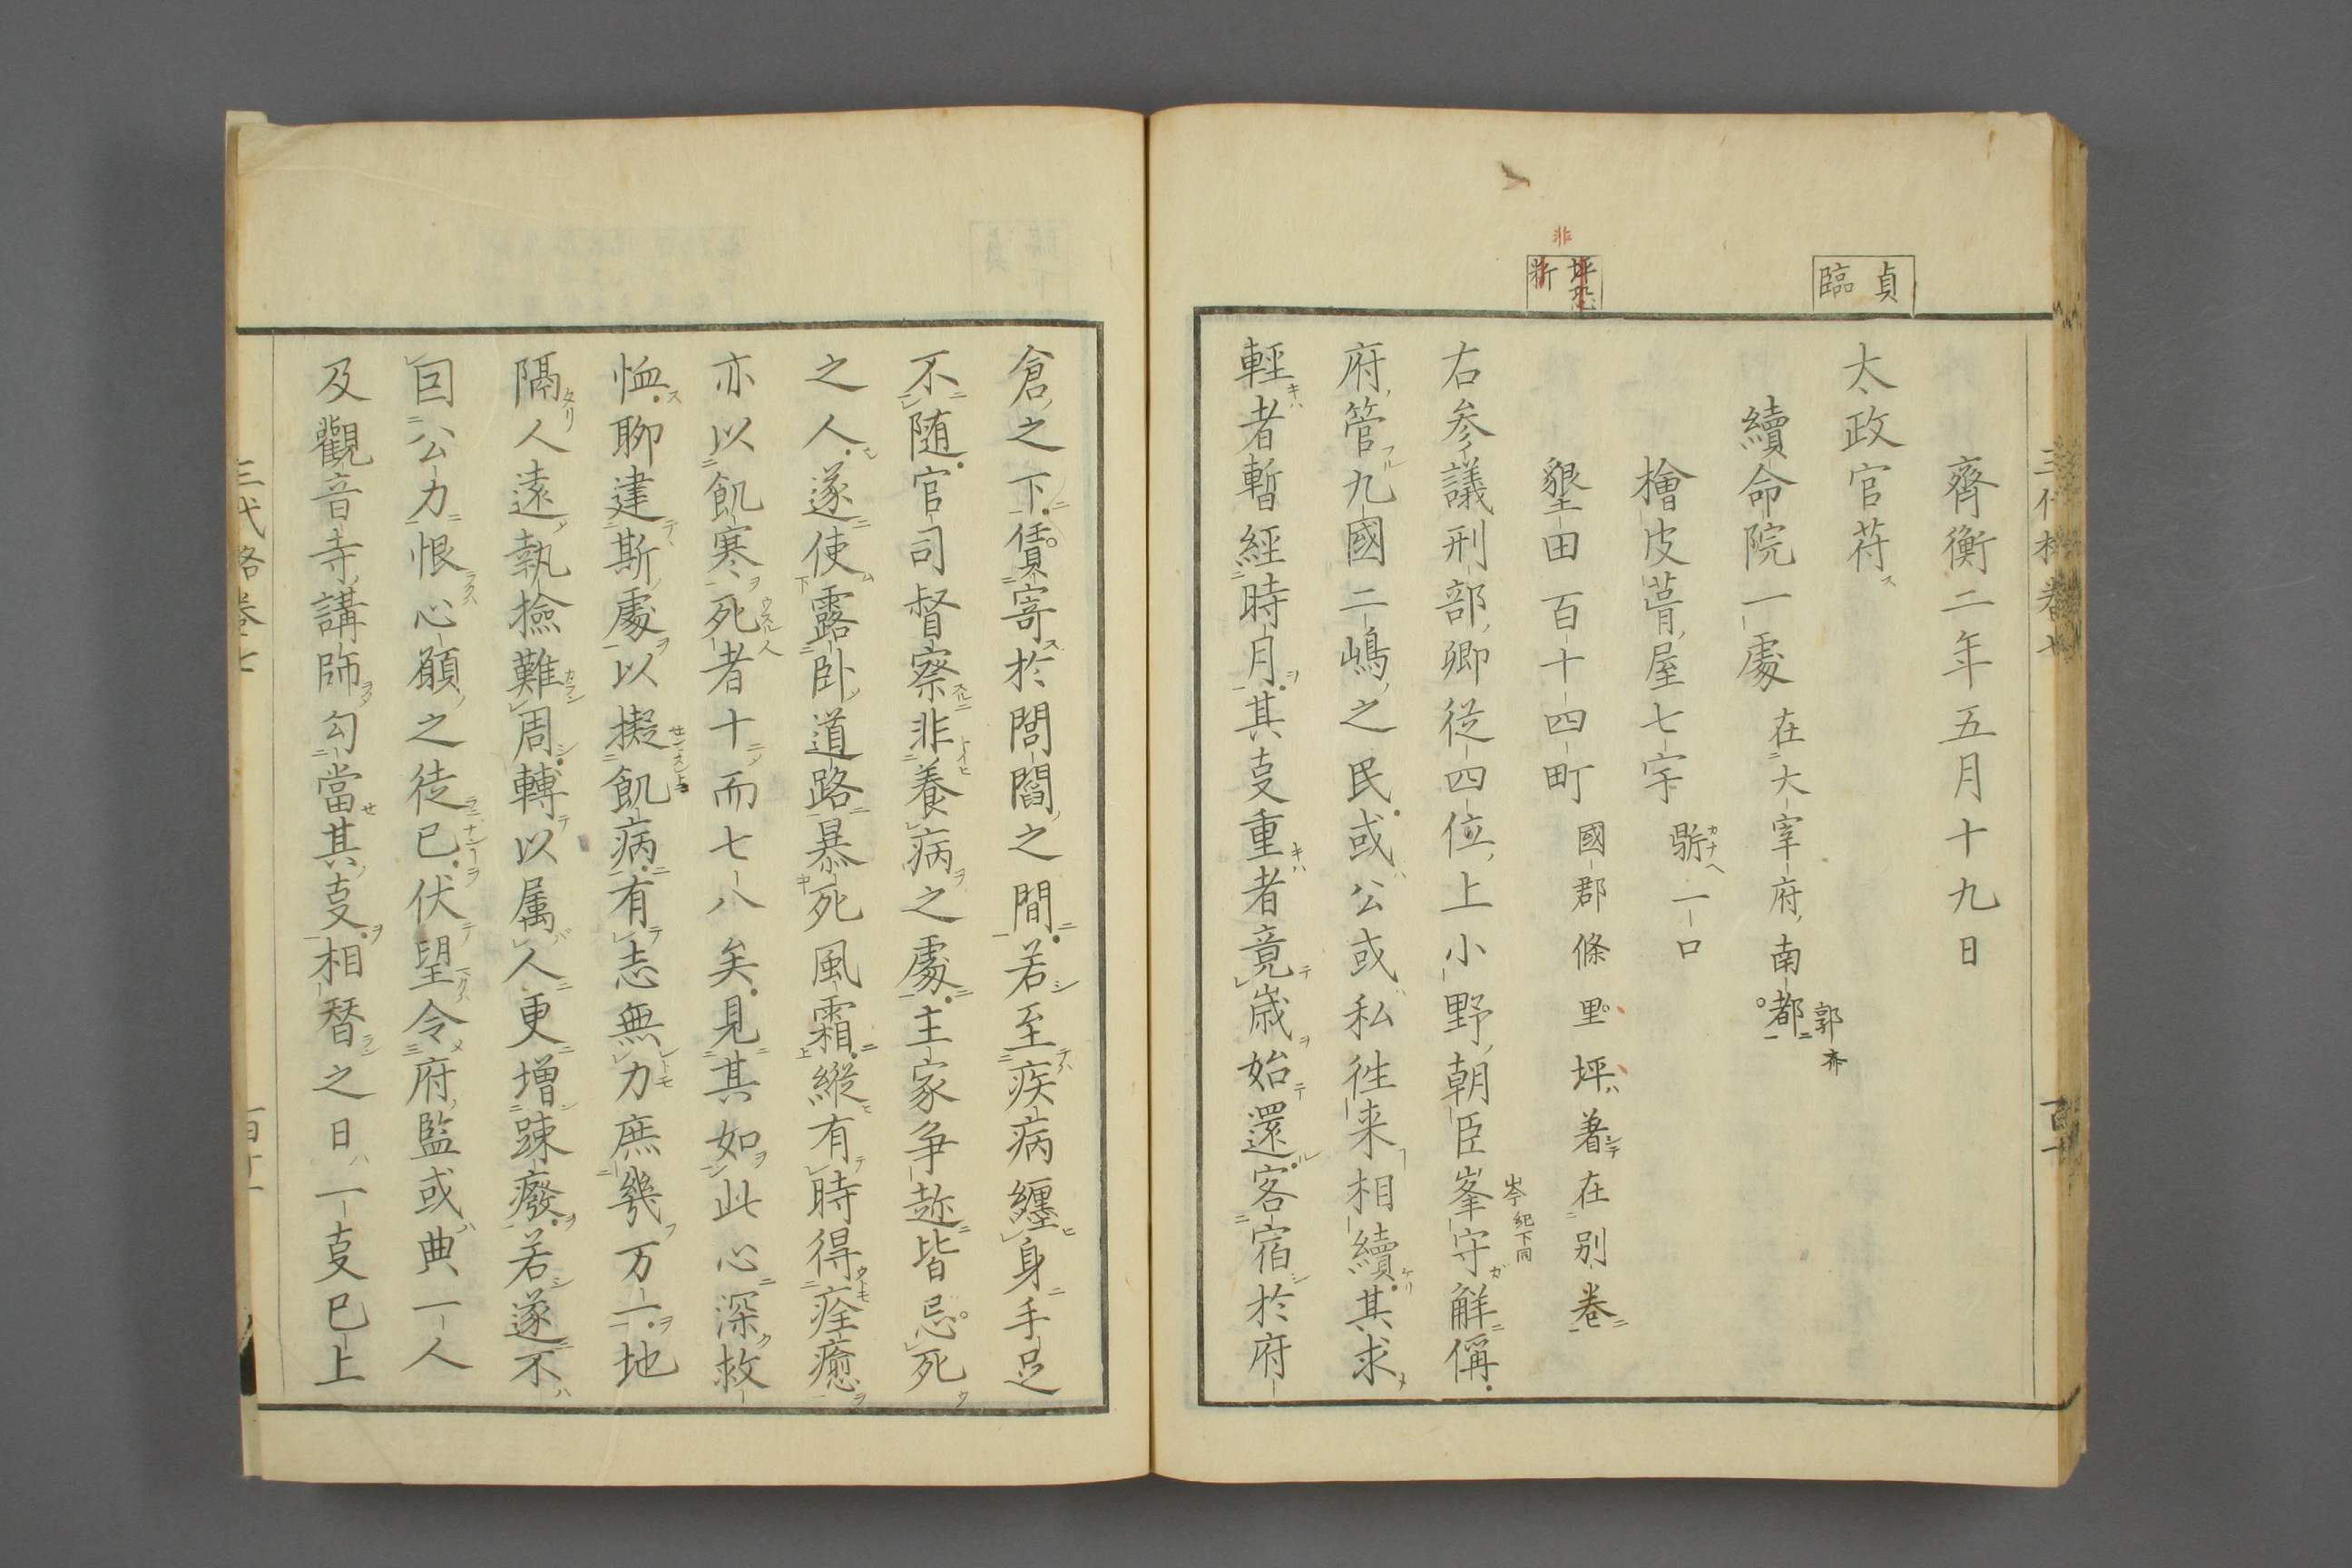 貞
臨
齊衡二年五月十九日
太政官符
續命院一處 在大宰府南都
郭
檜皮葺屋七宇 一口
非
墾田百十四町 國郡條里坪着在別卷
右参議刑部卿從四位上小野朝臣峯守解偁
岑 紀下同
府管九國二嶋之民或公或私往来相續其求
輕者暫經時月其㕝重者竟歳始還客宿於府
倉之下賃寄於閭閻之間若至疾病纒身手足
不随官司督察非養病之處主家争趂皆忌死
之人遂使露卧道路暴死風霜縱有時得痊癒
亦以飢寒死者十而七八矣見其如此心深救
恤聊建斯處以擬飢病有志無力庶幾万一地
隔人遠執撿難周轉以属人更增踈癈若遂不
因公力恨心願之徒已伏望令府監或典一人
及觀音寺講師勾當其㕝相替之日一㕝已上
三代格卷七